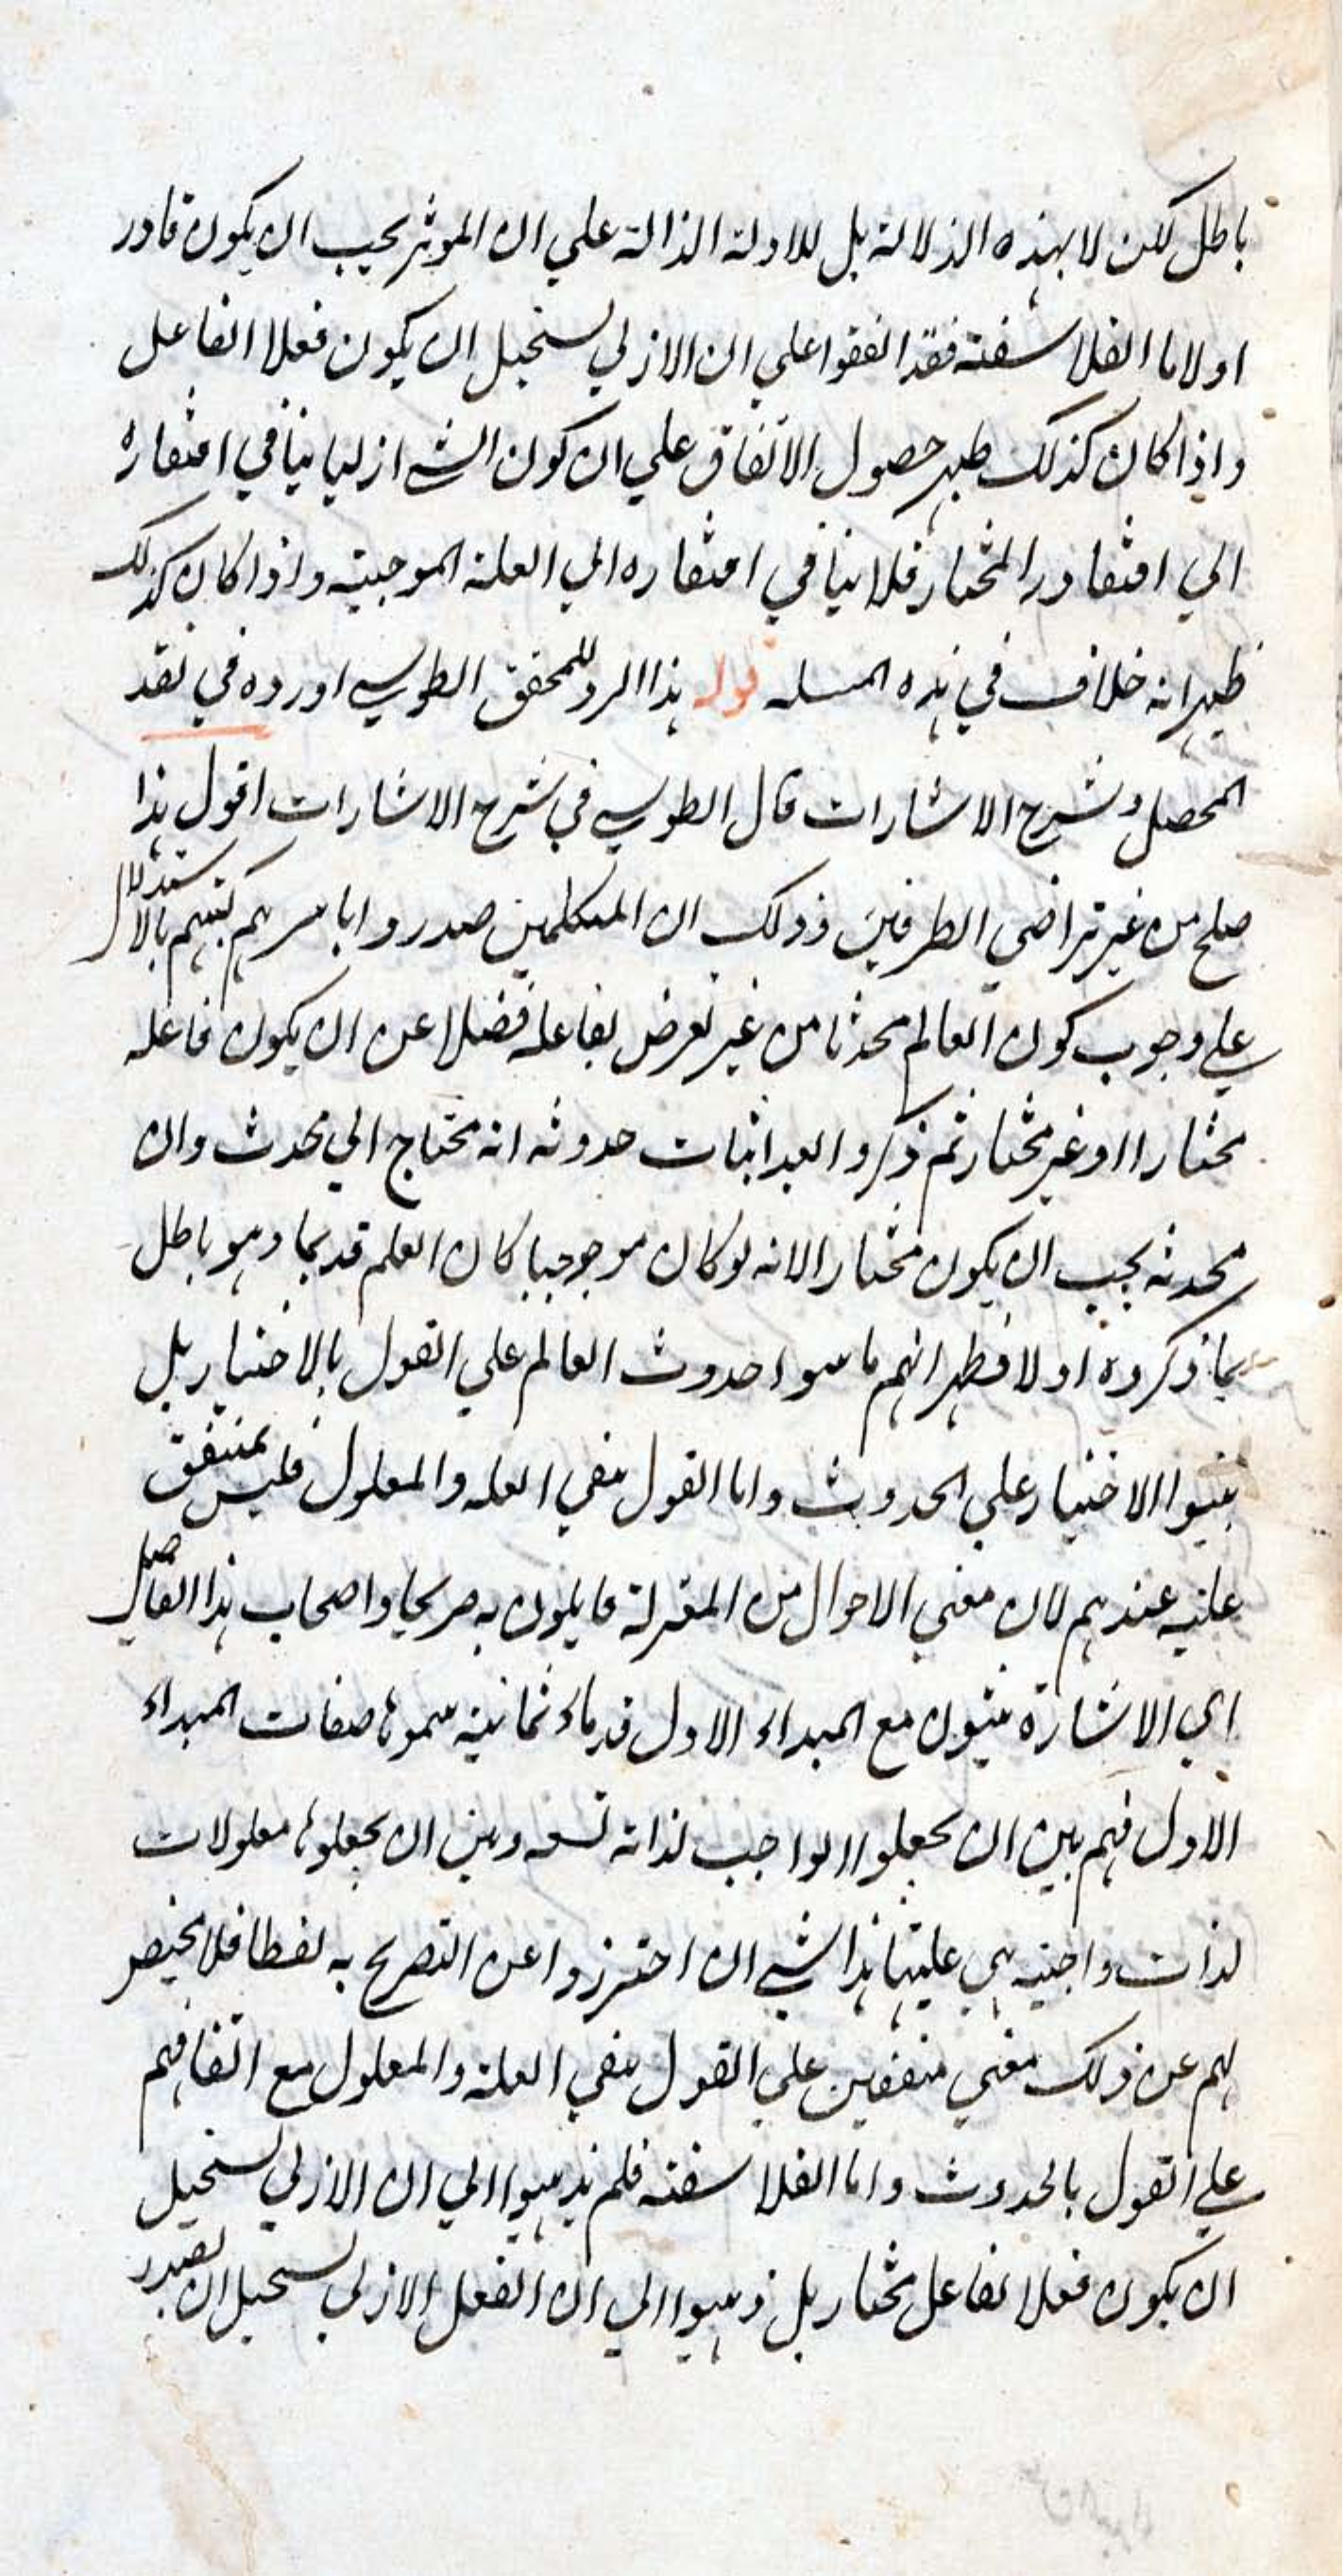 باطل لكن لا بهذه الدلالة بل للادلة الدالة علي ان الموثر يجب ان يكون قادر
او لاما الفلاسفة فقد اتفقوا علي ان الازلي يستحيل ان يكون فعلا الفاعل
واذا كان كذلك ظهر حصول الاتفاق علي ان كون الشي ازليا ينافي افتقاره
الي افتقادر المختار فلا ينافي افتقاره الي العلة الموجبة واذا كان كذلك
ظهر انه خلاف في هذه المسله قوله هذا الرد للمحقق الطوسي اورده في نقد
المحصل وشرح الاشارات قال الطوسي في شرح الاشارات اقول هذا
صلح من غير تراضي الطرفين وذلك ان المتكلمين صدروا باسرهم كتبهم بالاستدلال
علي وجوب كون العالم محدثا من غير تعرض لفاعله فضلا عن ان يكون فاعله
مختارا او غير مختار ثم ذكروا بعد اثبات حدوثه انه محتاج الي محدث وان
محدثه يجب ان يكون مختارا لانه لو كان موجبا كان العلم قديما وهو باطل
بما ذكروه اولا فظهر انهم ما سوا حدوث العالم علي القول بالاختيار بل
بنبوا الاختيار علي الحدوث واما القول بنفي العله والمعلول فليس بمتفق
عليه عندهم لان مفني الاحوال من المعتزلة قايلون به صريحا واصحاب هذا الفاضل
اي الاشارة يثبون مع المبداء الاول قدماء ثمانية سموها صفات المبداء
الاول فهم بين ان يجعلوا الواجب لذاته تسعه وبين ان يجعلوها معلولات
لذات واجبه هي علتها هذا شي ان احترزوا عن التصريح به لفظا فلا يخيصر
لهم عن ذلك مفني متفقين علي القول بنفي العلة والمعلول مع اتفاقهم
علي القول بالحدوث واما الفلاسفة فلم يذهبوا الي ان الازلي يستحيل
ان يكون فعلا لفاعل مختار بل ذهبوا الي ان الفعل الازلي يستحيل ان يصدر